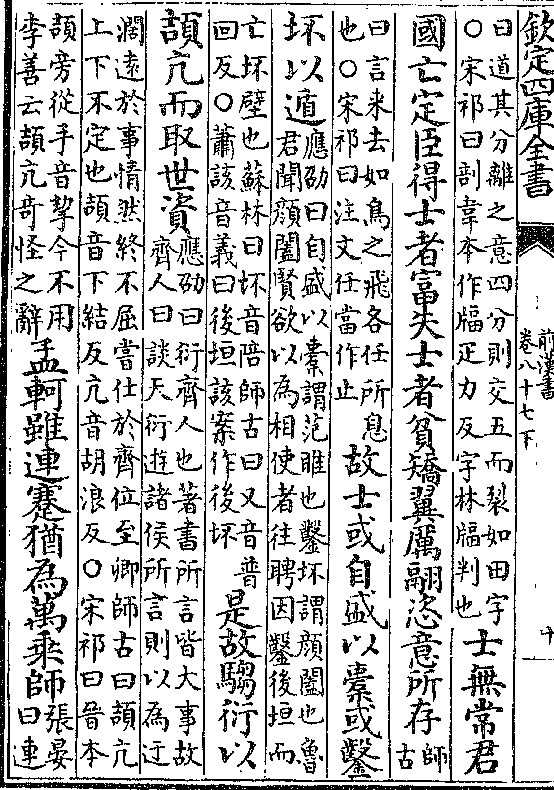 欽定四庫全書
前漢書
卷八十七下
十
曰道其分離之意四分則交五而裂如田字
○宋祁曰剖韋本作牑疋力反字林牑判也
士無常君
國亡定臣得士者富失士者貧矯翼厲翮恣意所存
師
古
曰言来去如鳥之飛各任所息
也○宋祁曰注文任當作止
故士或自盛以橐或鑿
坏以遁
應劭曰自盛以橐謂范雎也鑿坏謂顔闔也魯
君聞顔闔賢欲以為相使者往聘因鑿後垣而
亡坏壁也蘇林曰坏音陪師古曰又音普
回反○蕭該音義曰後垣該案作後坏
是故騶衍以
頡亢而取世資
應劭曰衍齊人也著書所言皆大事故
齊人曰談天衍遊諸侯所言則以為迂
濶遠於事情然終不屈嘗仕於齊位至卿師古曰頡亢
上下不定也頡音下結反亢音胡浪反○宋祁曰晉本
頡旁從手音挈今不用
李善云頡亢奇怪之辭
孟軻雖連蹇猶為萬乘師
張晏
曰連